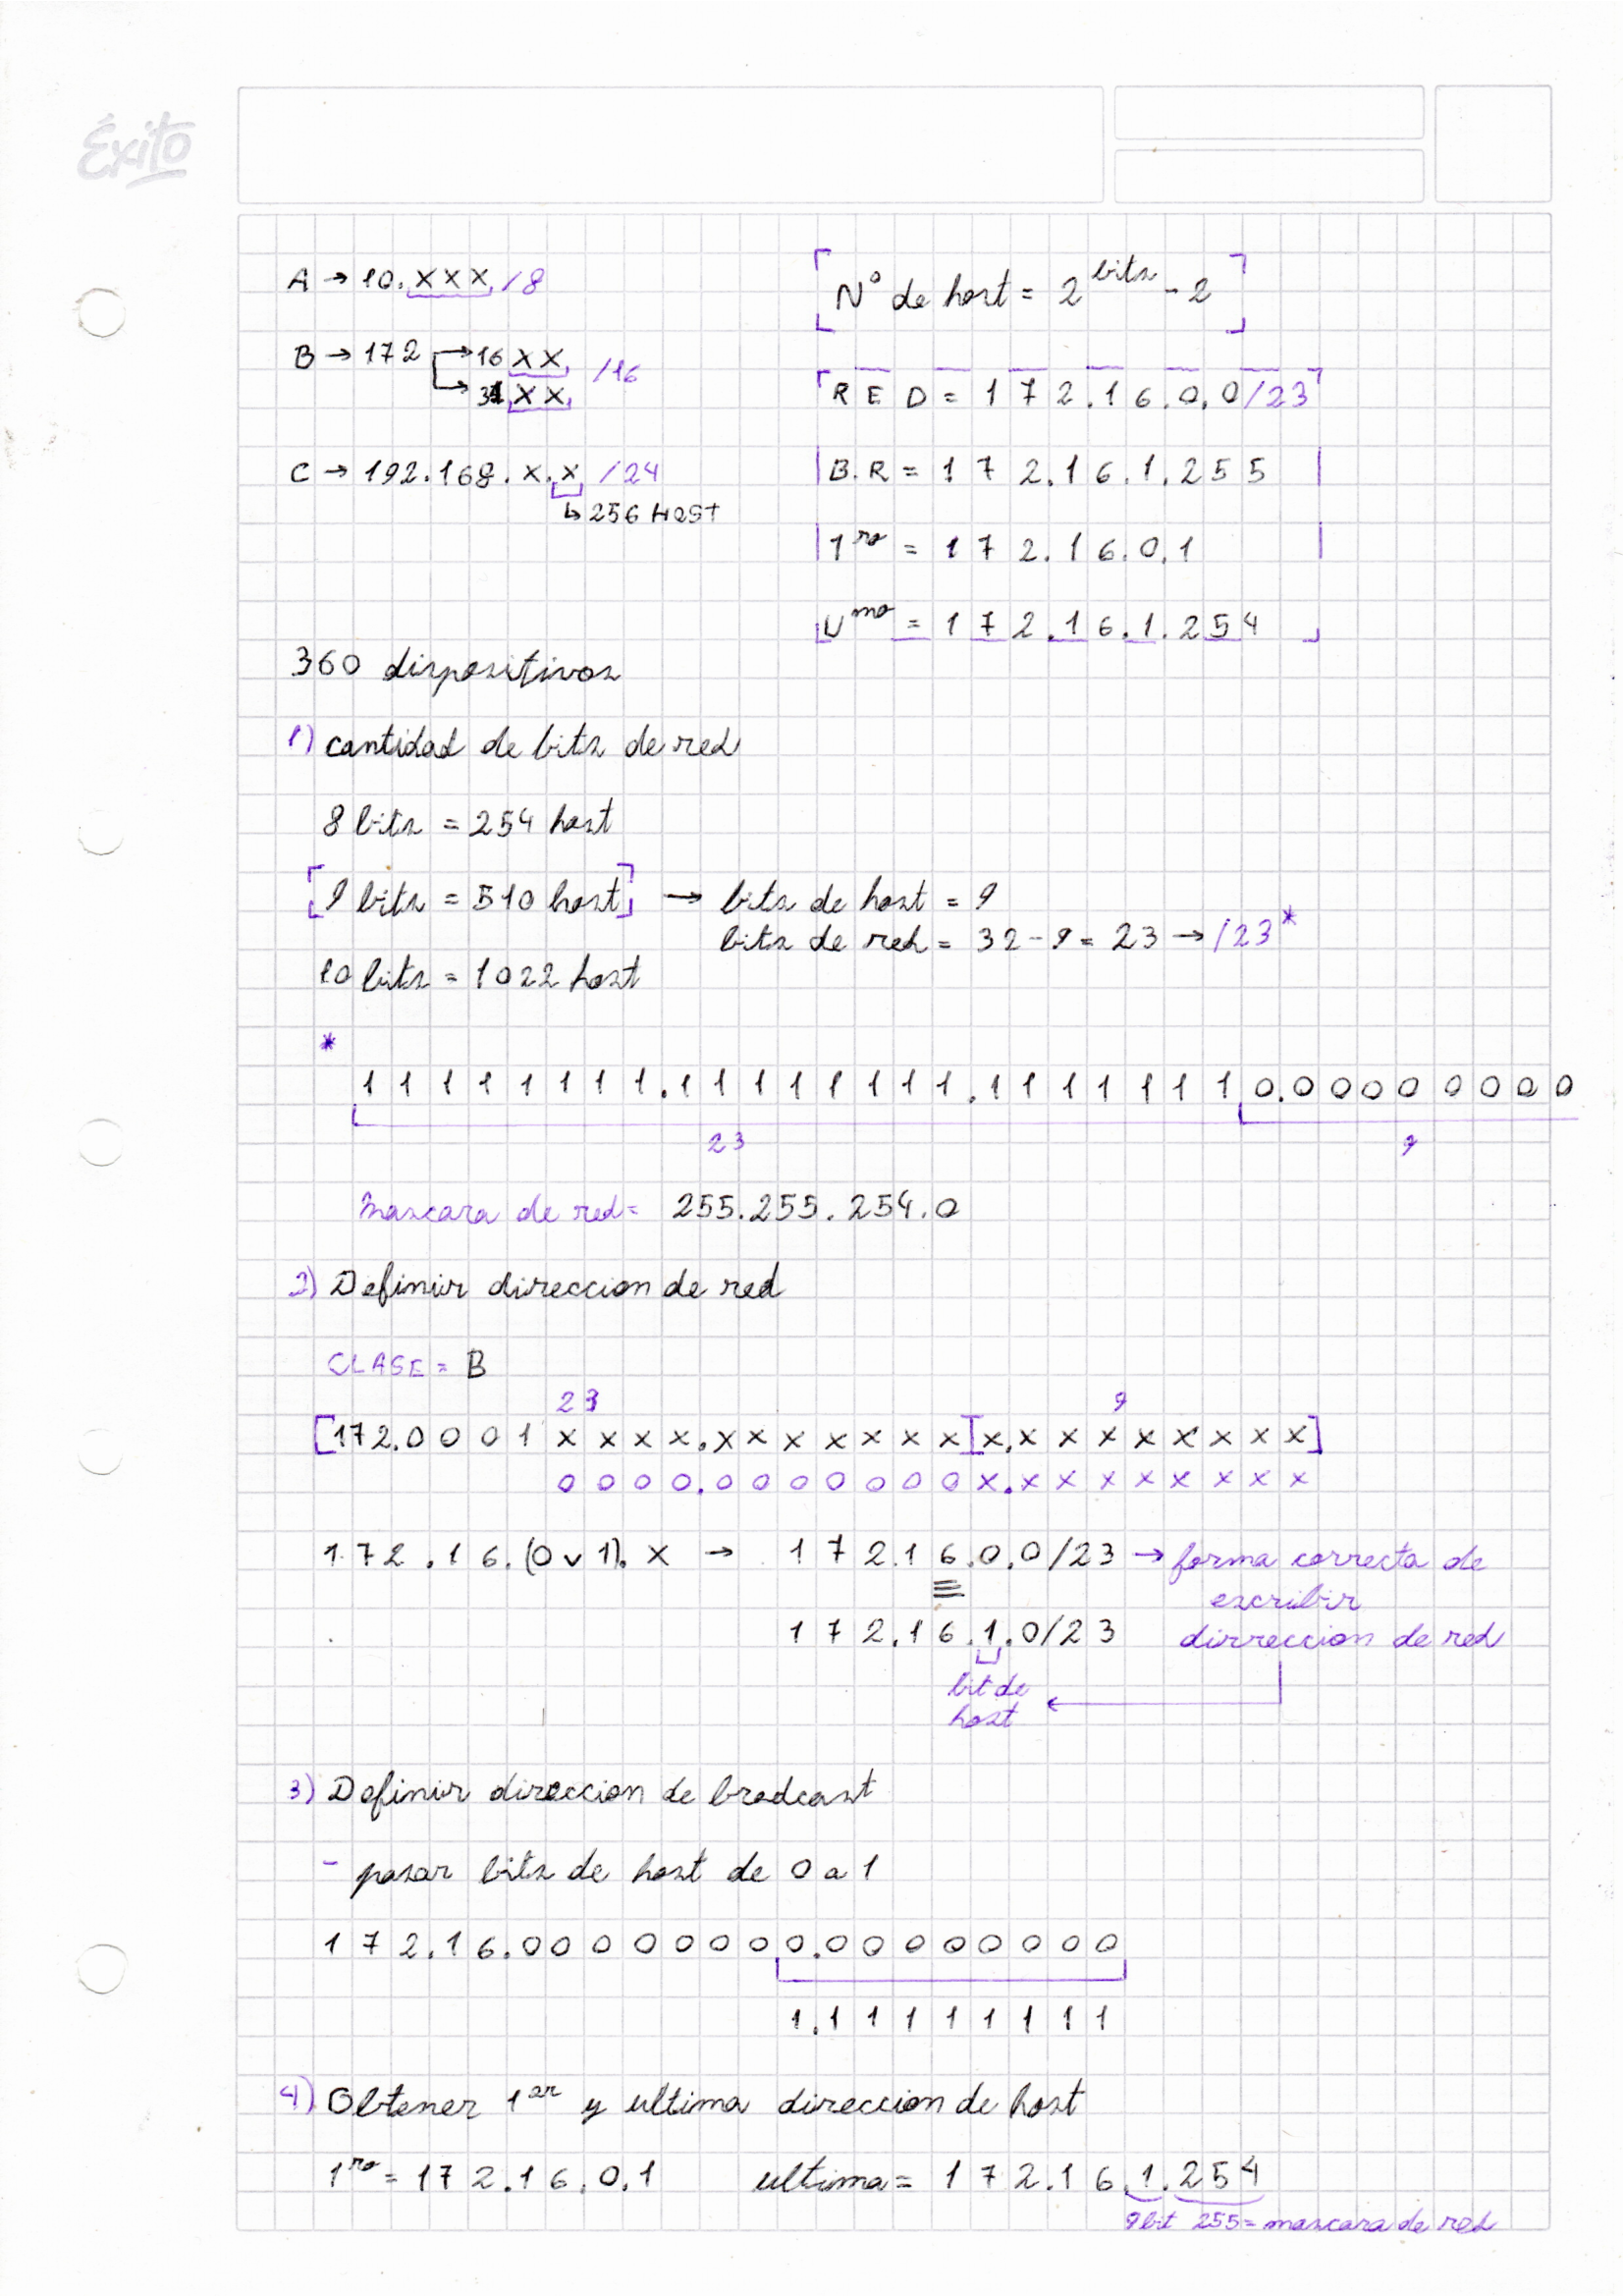 Éxito
A → 10.XXX /8
B → 172 → 16 XX /16
→ 31 XX
C → 192.168.x.x /24
↳ 256 HOST
Nº de host = 2^bits - 2
RED = 172.16.0.0/23
B.R = 172.16.1.255
1ro = 172.16.0.1
Umo = 172.16.1.254
360 dispositivos
1) cantidad de bits de red
8 bits = 254 host
[9 bits = 510 host] → bits de host = 9
bits de red = 32-9 = 23 → /23*
10 bits = 1022 host
*
11111111.11111111.11111110.00000000
23 9
mascara de red= 255.255.254.0
2) Definir direccion de red
CLASE = B
23 9
[172.0001xxxx.xxxxxxx][x.xxxxxxxx]
0000.0000000x.xxxxxxxx
172.16.(0 v 1).x → 172.16.0.0/23 → forma correcta de
≡ escribir
172.16.1.0/23 dirreccion de red
bit de
host ←
3) Definir direccion de brodcast
- pasar bits de host de 0 a 1
172.16.00000000.00000000
1.11111111
4) Obtener 1er y ultima direccion de host
1ro = 172.16.0.1 ultima = 172.16.1.254
9bit 255= mascara de red